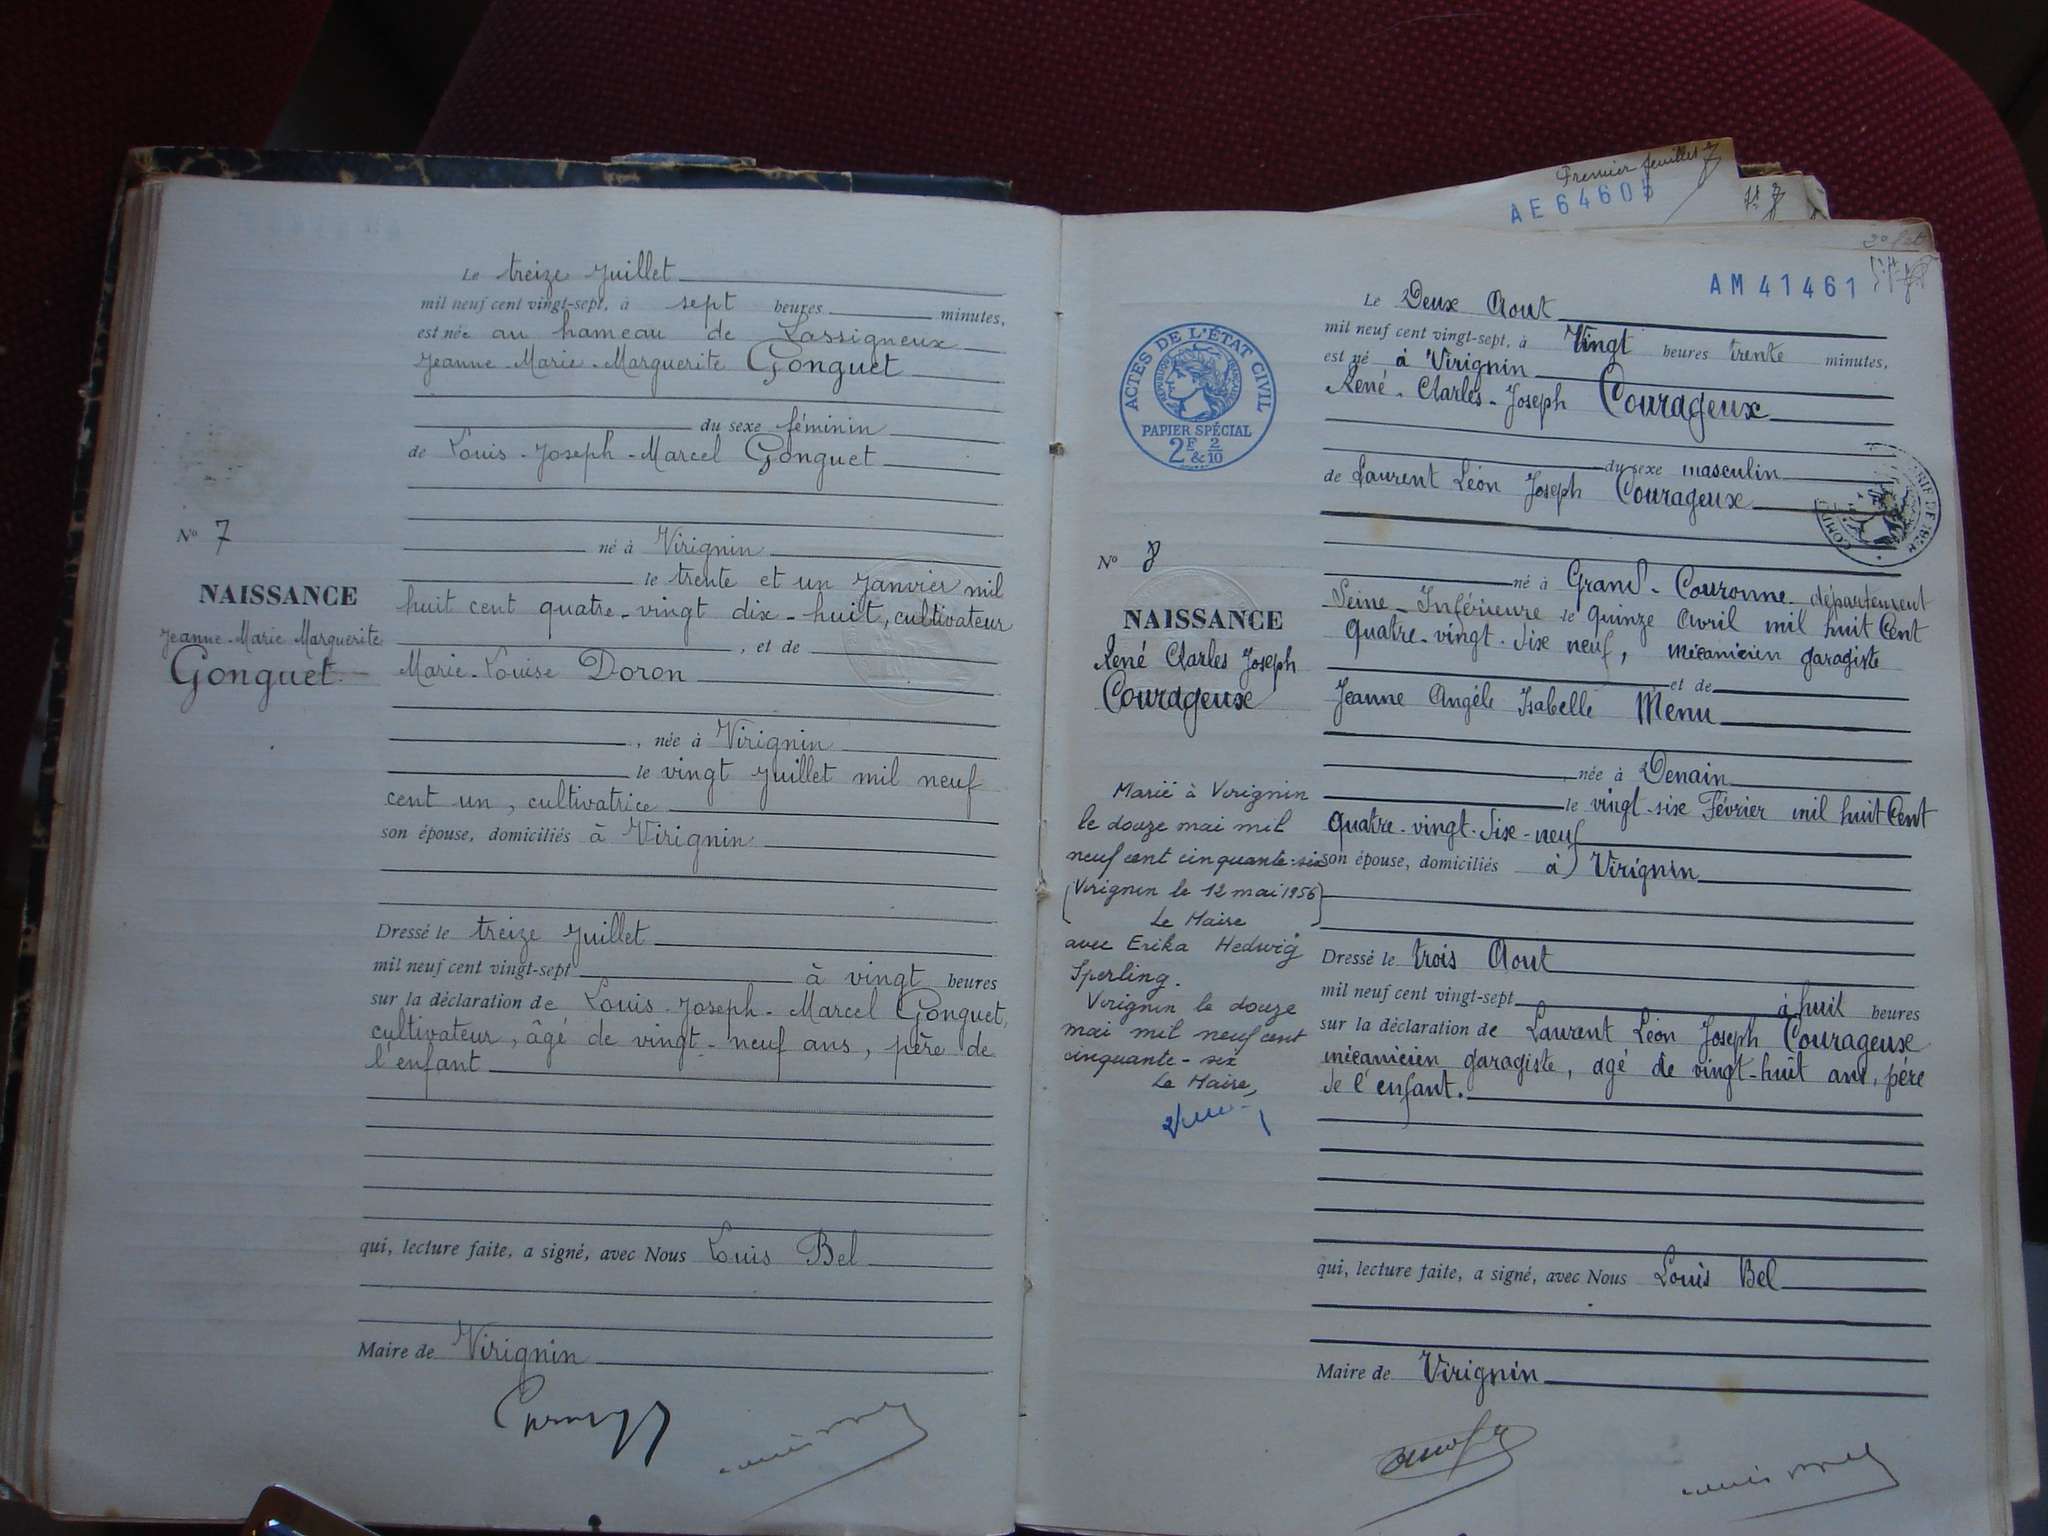 Le treize Juillet
mil neuf cent vingt-sept, à sept heures minutes,
est née au hameau de Lassigneux
Jeanne-Marie-Marguerite Gonguet
du sexe féminin
de Louis-Joseph-Marcel Gonguet
né à Virignin
le trente et un Janvier mil
huit cent quatre-vingt dix-huit, cultivateur
, et de
Marie-Louise Doron
, née à Virignin
le vingt Juillet mil neuf
cent un, cultivatrice
son épouse, domiciliés à Virignin
Dressé le treize Juillet
mil neuf cent vingt-sept à vingt heures
sur la déclaration de Louis-Joseph-Marcel Gonguet,
cultivateur, âgé de vingt-neuf ans, père de
l'enfant
qui, lecture faite, a signé, avec Nous Louis Bel
Maire de Virignin
No 7
NAISSANCE
Jeanne-Marie Marguerite
Gonguet
Premier feuillet
AE 64605
AM 41461
ACTES DE L'ÉTAT CIVIL
RÉPUBLIQUE FRANÇAISE
PAPIER SPÉCIAL
2F & 2/10
Le Deux Aout
mil neuf cent vingt-sept, à Vingt heures trente minutes,
est né à Virignin
René-Charles-Joseph Courageux
du sexe masculin
de Laurent Léon Joseph Courageux
né à Grand-Couronne département
Seine-Inférieure le Quinze Avril mil huit Cent
Quatre-vingt-Dix neuf, mécanicien garagiste
et de
Jeanne Angèle Isabelle Menu
, née à Denain
le vingt-six Février mil huit Cent
Quatre-vingt-Dix-neuf
son épouse, domiciliés à Virignin
Dressé le trois Aout
mil neuf cent vingt-sept à huit heures
sur la déclaration de Laurent Léon Joseph Courageux
mécanicien garagiste, agé de vingt-huit ans, père
de l'enfant.
qui, lecture faite, a signé, avec Nous Louis Bel
Maire de Virignin
No 8
NAISSANCE
René Charles Joseph
Courageux
Marié à Virignin
le douze mai mil
neuf cent cinquante-six
(Virignin le 12 mai 1956)
Le Maire
avec Erika Hedwig
Sperling.
Virignin le douze
mai mil neuf cent
cinquante-six
Le Maire,